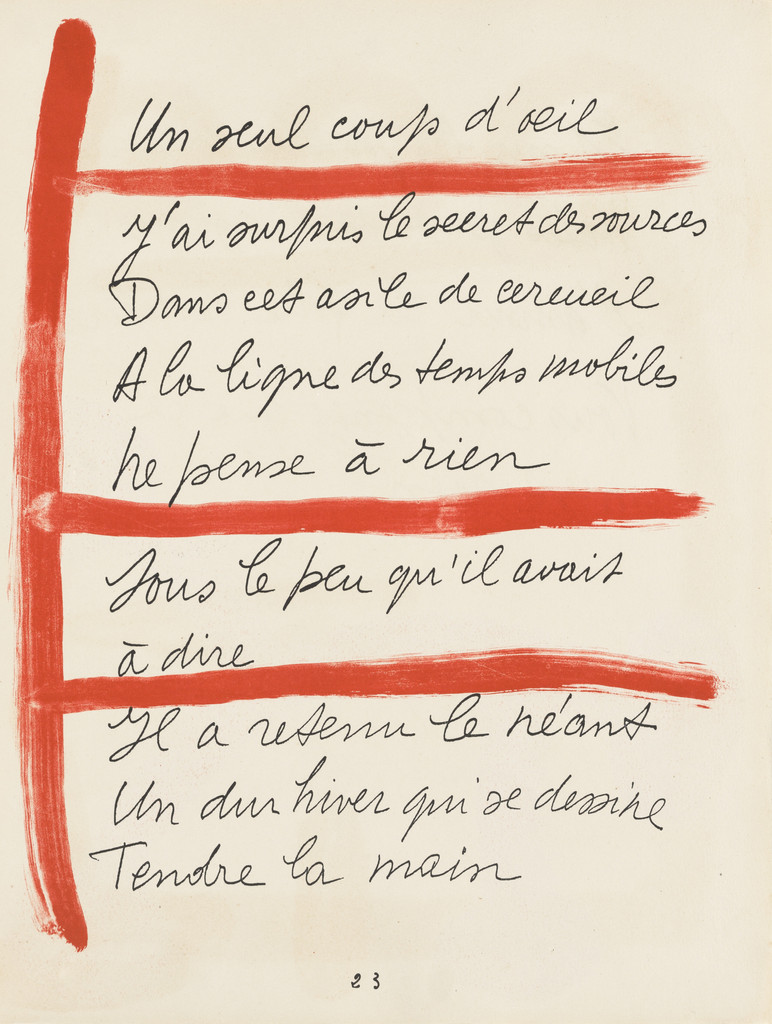 Un seul coup d'oeil
J'ai surpris le secret des sources
Dans cet asile de cercueil
A la ligne des temps mobiles
Ne pense à rien
Sous le peu qu'il avait
à dire
Il a retenu le néant
Un dur hiver qui se dessine
Tendre la main
23